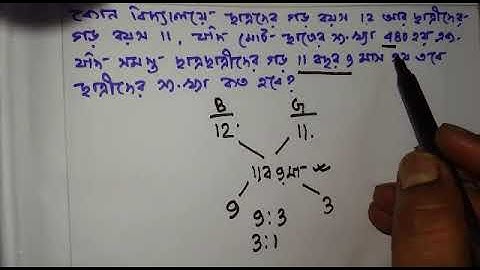 কোন বিদ্যালয়ে ছাত্রদের গড় বয়স 12 আর ছাত্রীদের
গড় বয়স 11, যদি মোট ছাত্রের সংখ্যা 480 হয়
যদি সমস্ত ছাত্রছাত্রীদের গড় 11 বছর 9 মাস হয় তবে
ছাত্রীদের সংখ্যা কত হবে?
B G
12 11
11ব 9মা
9 3
9:3
3:1